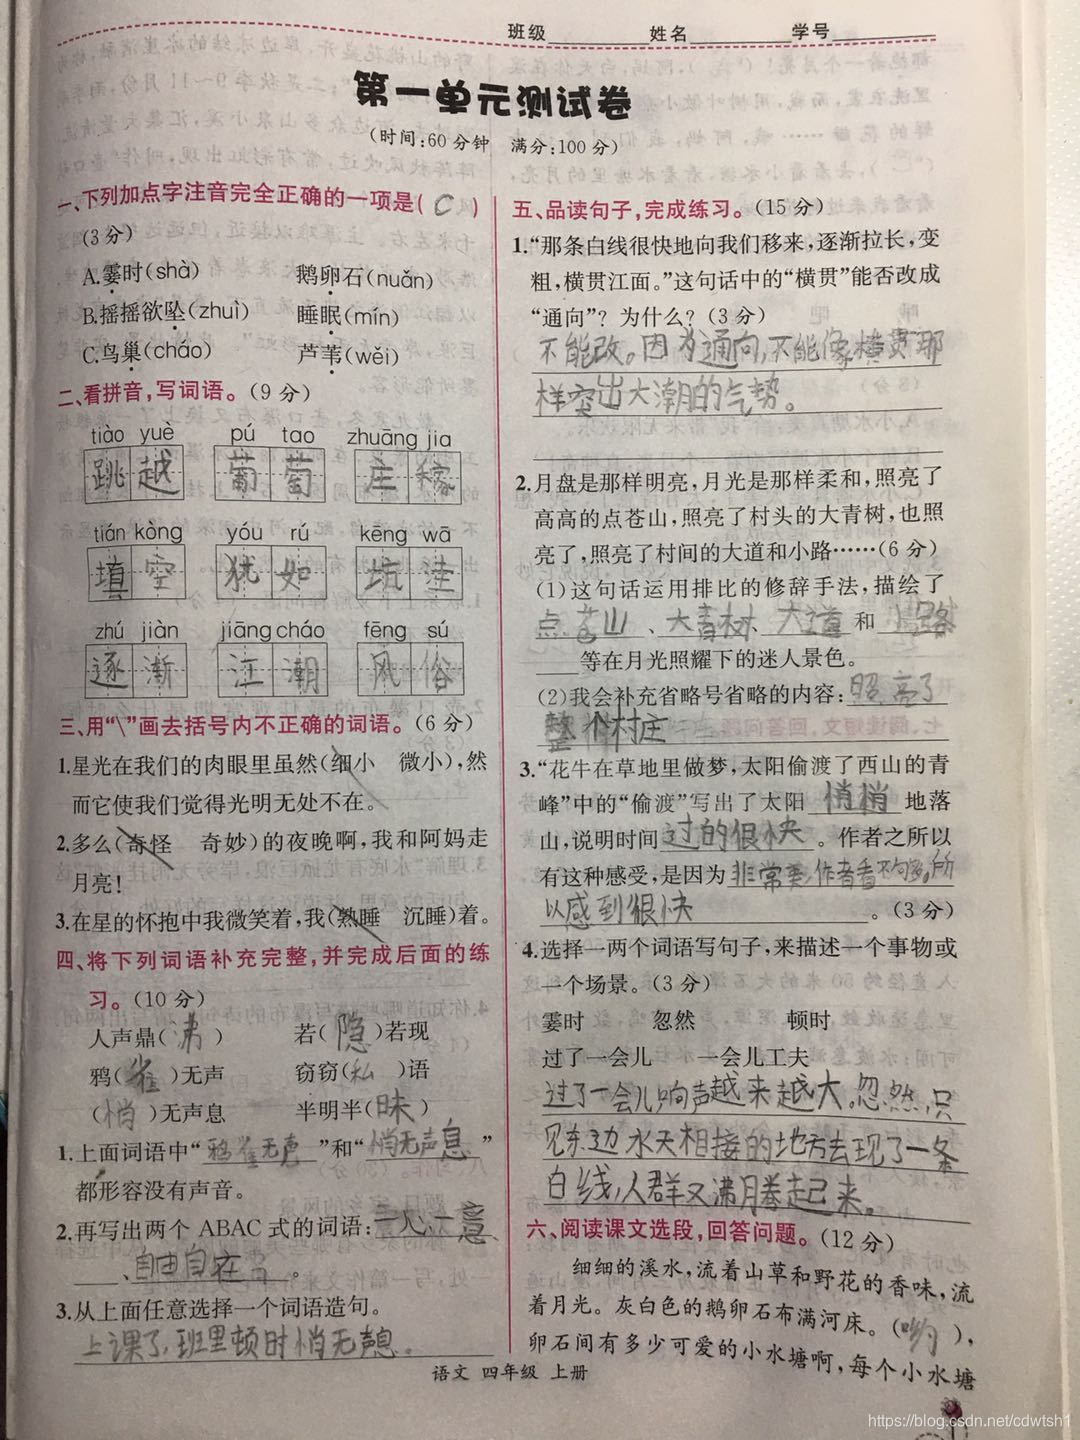 班级 姓名 学号
第一单元测试卷
(时间:60分钟 满分:100分)
一、下列加点字注音完全正确的一项是( C )
(3分)
A.霎时(shà) 鹅卵石(nuǎn)
B.摇摇欲坠(zhuì) 睡眠(mín)
C.鸟巢(cháo) 芦苇(wěi)
二、看拼音,写词语。(9分)
tiào yuè pú tao zhuāng jia
跳越 葡萄 庄稼
tián kòng yóu rú kēng wā
填空 犹如 坑洼
zhú jiàn jiāng cháo fēng sú
逐渐 江潮 风俗
三、用“\”画去括号内不正确的词语。(6分)
1.星光在我们的肉眼里虽然(细小 微小),然
而它使我们觉得光明无处不在。
2.多么(奇怪 奇妙)的夜晚啊,我和阿妈走
月亮!
3.在星的怀抱中我微笑着,我(熟睡 沉睡)着。
四、将下列词语补充完整,并完成后面的练
习。(10分)
人声鼎(沸) 若(隐)若现
鸦(雀)无声 窃窃(私)语
(悄)无声息 半明半(昧)
1.上面词语中“鸦雀无声”和“悄无声息”
都形容没有声音。
2.再写出两个 ABAC 式的词语:一心一意
、自由自在。
3.从上面任意选择一个词语造句。
上课了,班里顿时悄无声息。
五、品读句子,完成练习。(15分)
1.“那条白线很快地向我们移来,逐渐拉长,变
粗,横贯江面。”这句话中的“横贯”能否改成
“通向”?为什么?(3分)
不能改。因为通向,不能像横贯那
样突出大潮的气势。
2.月盘是那样明亮,月光是那样柔和,照亮了
高高的点苍山,照亮了村头的大青树,也照
亮了,照亮了村间的大道和小路……(6分)
(1)这句话运用排比的修辞手法,描绘了
点苍山、大青树、大道和小路
等在月光照耀下的迷人景色。
(2)我会补充省略号省略的内容:照亮了
整个村庄
3.“花牛在草地里做梦,太阳偷渡了西山的青
峰”中的“偷渡”写出了太阳 悄悄 地落
山,说明时间过的很快。作者之所以
有这种感受,是因为非常美,作者看不够。所
以感到很快。(3分)
4.选择一两个词语写句子,来描述一个事物或
一个场景。(3分)
霎时 忽然 顿时
过了一会儿 一会儿工夫
过了一会儿,响声越来越大。忽然,只
见东边水天相接的地方去现了一条
白线,人群又沸腾起来。
六、阅读课文选段,回答问题。(12分)
细细的溪水,流着山草和野花的香味,流
着月光。灰白色的鹅卵石布满河床。(哟),
卵石间有多少可爱的小水塘啊,每个小水塘
语文 四年级 上册
https://blog.csdn.net/cdwtsh1